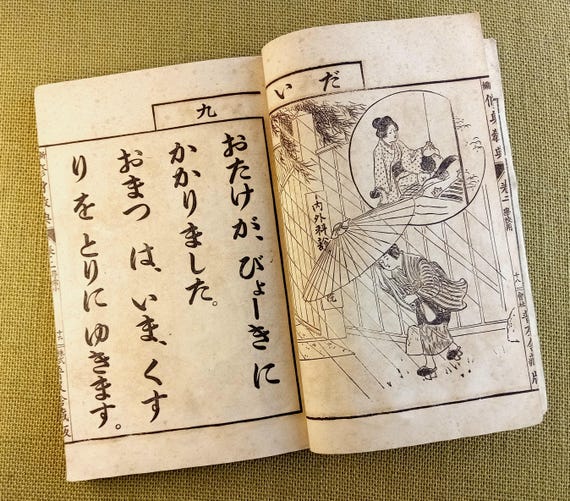 だい
九
内外科
おたけが、びょーきに
かかりました。
おまつ は、いま、くす
り を とりに ゆきます。